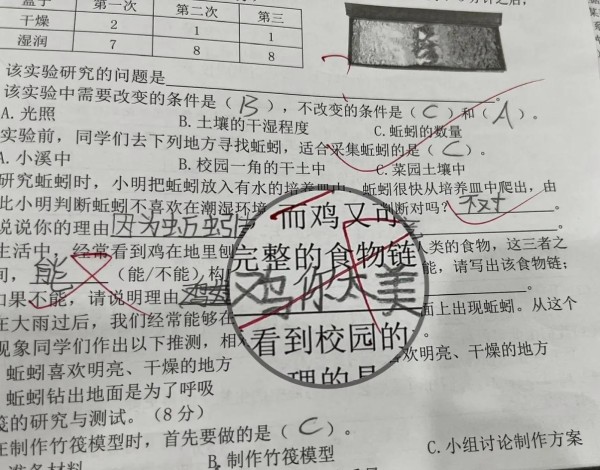 盒子 第一次 第二次 第三
干燥 2 1 1
湿润 7 8 8
该实验研究的问题是
该实验中需要改变的条件是（B），不改变的条件是（C）和（A）。
A.光照 B.土壤的干湿程度 C.蚯蚓的数量
实验前，同学们去下列地方寻找蚯蚓，适合采集蚯蚓的是（C）。
A.小溪中 B.校园一角的干土中 C.菜园土壤中
研究蚯蚓时，小明把蚯蚓放入有水的培养皿中，蚯蚓很快从培养皿中爬出，由
此小明判断蚯蚓不喜欢在潮湿环境 判断对吗？不对。
说说你的理由因为蚯蚓
生活中，经常看到鸡在地里刨 而鸡又可 人类的食物，这三者之
间，能（能/不能）构 完整的食物链 能，请写出该食物链；
如果不能，请说明理由 鸡你太美
在大雨过后，我们经常能够在 看到校园的 面上出现蚯蚓。从这个
现象同学们作出以下推测，相 理的是
蚯蚓喜欢明亮、干燥的地方 喜欢明亮、干燥的地方
蚯蚓钻出地面是为了呼吸
筏的研究与测试。（8分）
在制作竹筏模型时，首先要做的是（C）。
准备材料 B.制作竹筏模型 C.小组讨论制作方案